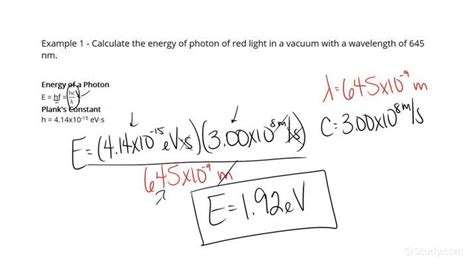 Example 1 - Calculate the energy of photon of red light in a vacuum with a wavelength of 645
nm.
Energy of a Photon
E = hf = hc/λ
Plank's Constant
h = 4.14x10⁻¹⁵ eV·s
λ=645x10⁻⁹ m
C=3.00x10⁸ m/s
E=(4.14x10⁻¹⁵ eV·s)(3.00x10⁸ m/s)
645x10⁻⁹ m
E=1.92eV
©Study.com